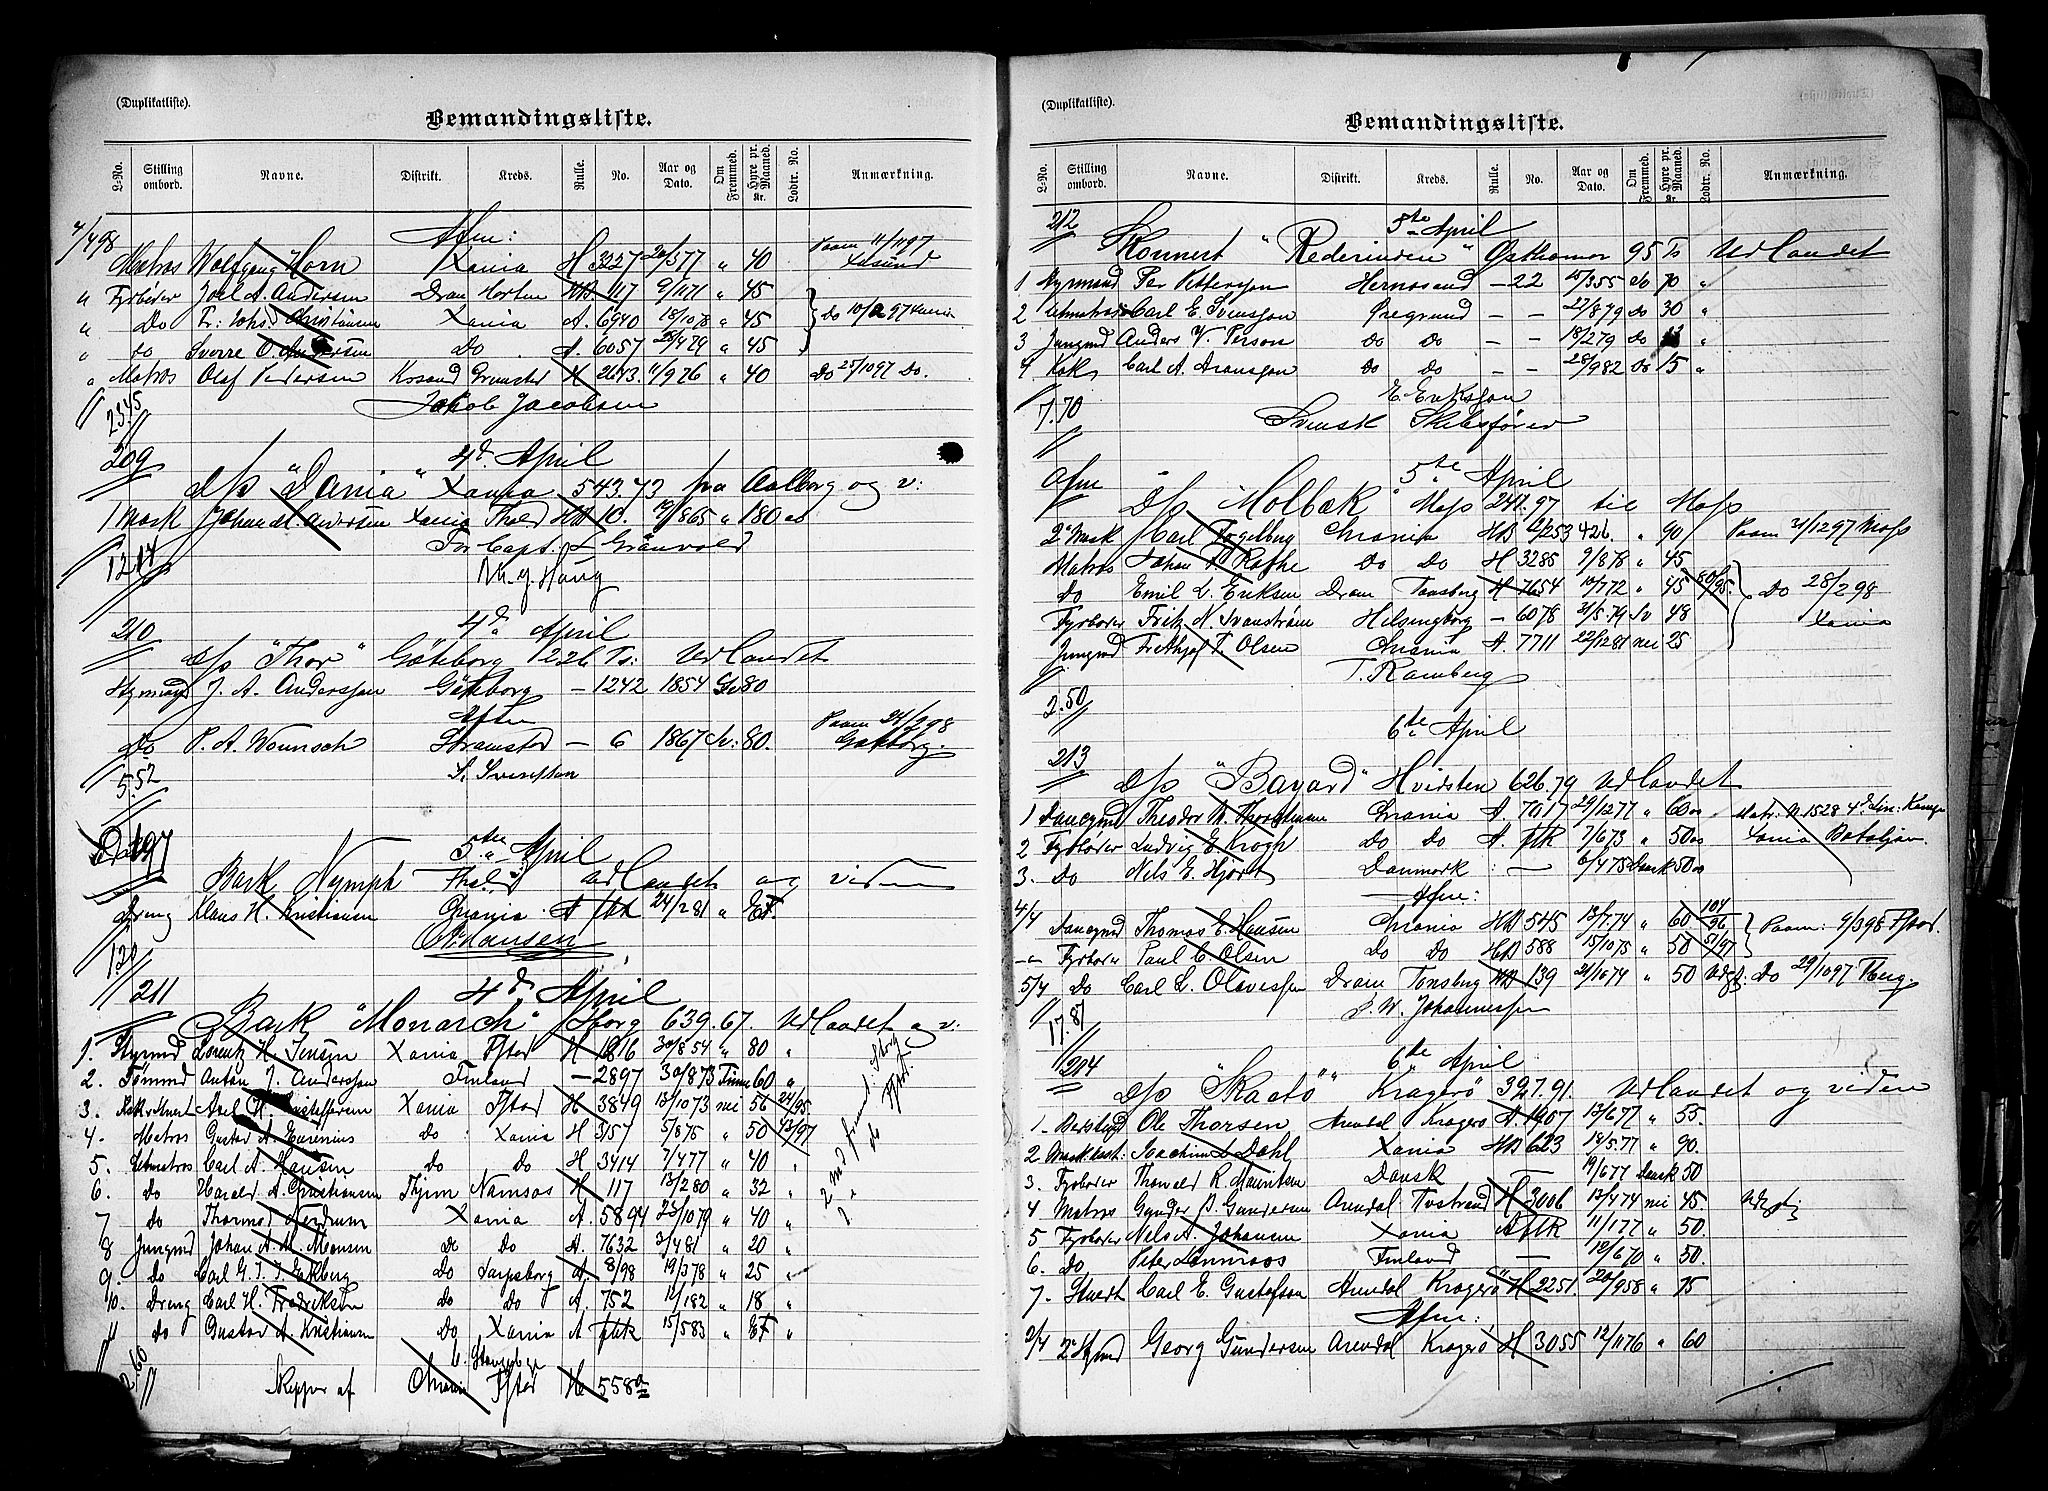 (Duplikatliste).
Bemandingsliste.
L-No. Stilling ombord. Navne. Distrikt. Kreds. Rulle. No. Aar og Dato. Om Fremmed. Hyre pr. Maaned. Kr. Lodtr. No. Anmærkning.
4/4 98 Afm:
Matros Wolfgang Horn Xania H 3227 20/5 77 " 40 Paam 11/11 97 Xsund
" Fyrböter Joel A. Andersen Dram Horten HB 117 9/11 71 " 45
" Do Fr: Johs Christiansen Xania A. 6940 18/10 78 " 45
" do Sverre O. Andersen Do A. 6057 " 45
" Matros Olaf Pedersen Xsand Grimstad H 2643 11/9 76 " 40 Do 25/10 97 Do.
Jakob Jacobsen
23.45
209 4d. April
d/s "Dania" Xania 543.73 fra Aalborg og v:
1 Mask Johan M. Andersen Xania HB 10. 12/8 65 " 180 00
For Capt. L Grönvold
M. J. Haug
12.14
210 4d. April
d/s "Thor" Göteborg 1226 Ts: Udlandet
Styrmand J. A. Andersson Göteborg - 1242 1854 Sv 80
Afm
Do P. A. Wounsch Strømstad - 6 1867 do: 80. Paam 24/2 98 Gøteborg.
5.52
197 5te April
Bark Nymph udlandet og viden
Dreng Klaus H. Kristiansen Chrania A ftk 24/2 81 "
Chr Hansen
1.20
211 4d. April
Bark "Monarch" Sborg 639.67. Udlandet og v:
1. Styrmd Lorentz H. Jensen Xania Fstad H 1816 30/8 54 " 80 "
2. Tømmd Anton J. Anderssen Finland - 2897 30/8 73 Finn 60 "
3. Kok & Stuert Axel H. Kristoffersen Xania Fstad H 3849 13/10 73 nei 56 24/95
4. Matros Gustav A. Do Xania H 3157 5/8 75 " 50 43/97
5. Letmatros Carl A. Hansen do Do H 3414 7/4 77 " 40 "
6. Do Harald A. Christiansen Thjem Namsos H 117 13/2 80 " 32 "
7 do Thormod Nordrum Xania A. 5894 23/10 79 " 40 "
8 Jungmd Johan A. M. Monsen Do Do A. 7632 3/4 81 " 20 "
9. do Carl G. J. F. Ekberg Do Sarpsborg A 8/98 19/3 78 " 25 "
10. Dreng Carl H. Fredriksen do do A. 752 12/1 82 " 18 "
11 do Gustav A. Kristiansen Do Xania A ftk 15/5 83 " "
Skipper af Chrania Fstad H 558
(Duplikatliste).
Bemandingsliste.
L-No. Stilling ombord. Navne. Distrikt. Kreds. Rulle. No. Aar og Dato. Om Fremmed. Hyre pr. Maaned. Kr. Lodtr. No. Anmærkning.
212 5te April
Skonnert "Rederinden" Östhamar 95 Ts Udlandet
1 Styrmand Per Pettersson Hernøsand - 22 15/3 55 do 70 "
2 Letmatros Carl E. Svensson Øregrund - - 27/8 79 Do 30 "
3 Jungmd Anders V. Person Do Do - - 18/2 79 Do "
4 Kok Carl A. Aronsson Do do - - 28/9 82 Do 15 "
E. Eriksson
7.70 Svensk Skibsfører
Afm 5te April
d/s "Molbæk" Moss 241.97 til Moss
2d Mask Carl Fogelberg Chrania HB 426. " 90 Paam 31/12 97 Moss
Matros Johan P. Rathe Do Do H 3285 9/8 78 " 45
Do Emil L. Eriksen Dram Tønsberg H 7654 10/7 72 " 45 80/95. Do 28/2 98
Fyrbøter Fritz N. Svanstrøm Helsingborg - 6078 21/5 79 Sv 48 Xania
Jungmd Frithjof T. Olsen Chrania A. 7711 22/12 81 nei 25
T. Ramberg
2.50
6te April
213
d/s "Bayard" Hvidsten 626.79 Udlandet
1 Chrania A. 7017 29/12 77 " 60 00 Matr: N. 1528 4d. Lin: Komp.
2 Fyrbøter Ludvig E. Krogh Do Do A. ftk 7/6 73 " 50 00 Xania Bataljon
3. Do Nels E. Hjort Danmark - 6/4 75 Dansk 50 00
Afm:
4/4 Thomas E. Hansen Chrania HB 545 13/7 74 " 60 104/96 Paam: 9/3 98 Fstad.
-"- Fyrbøter Paul C. Olsen Do Do HB 588 15/10 75 " 50 51/97
5/4 Do Carl L. Olavessen Dram Tønsberg HB 139 21/10 74 " 50 Udgj: Do 29/10 97 Tberg
J. W. Johannessen
17.87
214 6te April
d/s "Skaatø" Kragerø 327.91. Udlandet og viden
1. Bedstmd Ole Thorsen Arendal Kragerø A. 1907 13/6 77 " 55
2 Mask. Joachim L Dahl Xania HB 623 18/5 77 " 90.
3. Fyrbøter Thorvald R. Mauritsen Dansk 19/6 77 Dansk 50
4 Matros Gunder P. Gundersen Arendal Tvstrand H 3006 13/4 74 nei 45.
5 Fyrbøter Nels A. Johansen Xania A ftk 11/1 77 " 50.
6. Do Peter Lönmoos Finland 19/6 70 " 50.
7. Stuert Carl E. Gustafson Arendal Kragerø H 2251 20/9 58 " 75
Afm:
2/4 2d Stymd Georg Gundersen Arendal Kragerø H 3055 12/11 76 " 60